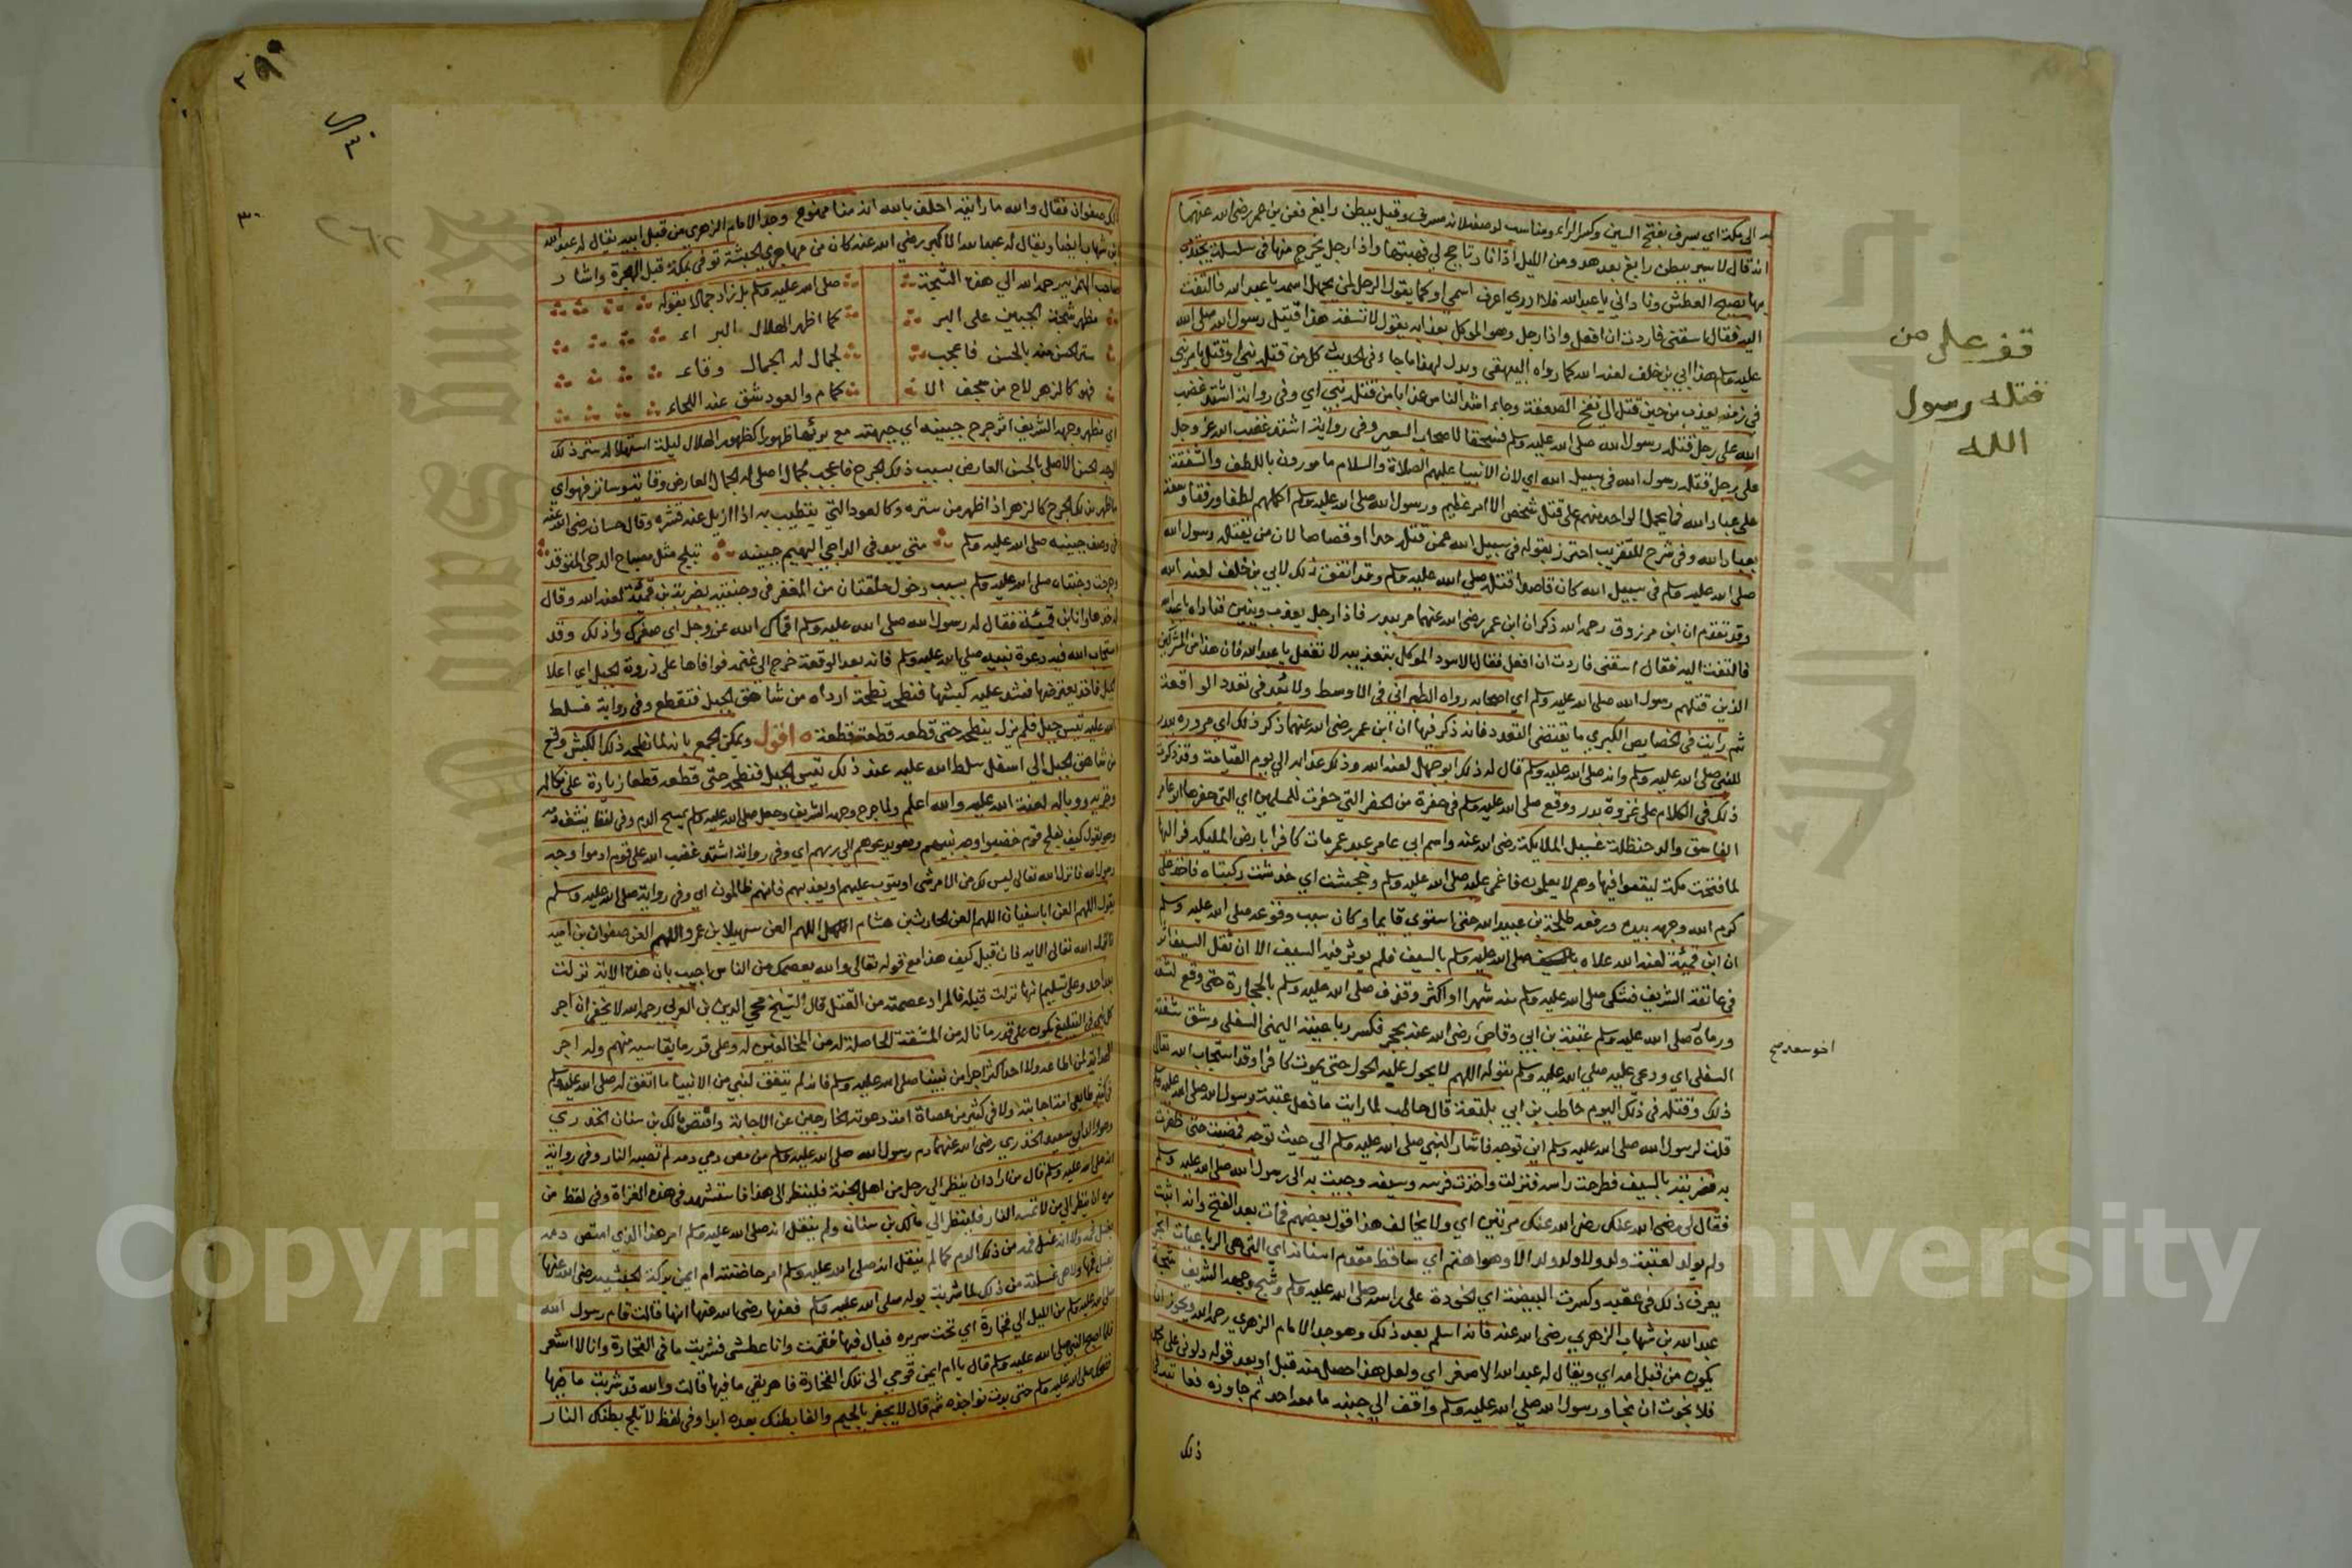 به الى مكة اي بسرف بفتح السين وكسر الراء ومناسب لوصفه لانه مسرف وقيل ببطن رابغ فعن ابن عمر رضي الله عنهما
انه قال لا سير ببطن رابغ بعد هدو من الليل اذا نار تاجج لي فهبتها واذا رجل يخرج منها في سلسلة يجتذبه
بها يصيح العطش وناداني يا عبد الله فلا ادري اعرف اسمي او كما يقول الرجل لمن يجهل اسمه يا عبد الله فالتفت
اليه فقال اسقني فاردت ان افعل واذا رجل وهو الموكل بعذابه يقول لا تسقه هذا قتيل رسول الله صلى الله
عليه وسلم هذا ابي بن خلف لعنه الله كما رواه البيهقي ويدل لهذا ما جاء في الحديث كل من قتله نبي او قتل بامر نبي
في زمنه يعذب من حين قتل الى نفخ الصعقة وجاء اشد الناس عذابا من قتله نبي اي وفي رواية اشتد غضب
الله على رجل قتله رسول الله صلى الله عليه وسلم فسحقا لاصحاب السعير وفي رواية اشتد غضب الله عز وجل
على رجل قتله رسول الله في سبيل الله اي لان الانبيا عليهم الصلاة والسلام مامورون باللطف والشفقة
على عباد الله فما يحمل الواحد منهم على قتل شخص الا امر عظيم ورسول الله صلى الله عليه وسلم اكملهم لطفا ورفقا وشفقة
بعباد الله وفي شرح التقريب احترز بقوله في سبيل الله عمن قتله حدا او قصاصا لان من يقتله رسول الله
صلى الله عليه وسلم في سبيل الله كان قاصدا قتله صلى الله عليه وسلم وقد اتفق ذلك لابي بن خلف لعنه الله
وقد تقدم ان ابن مرزوق رحمه الله ذكر ان ابن عمر رضي الله عنهما مر ببدر فاذا رجل يعذب ويئن فناداه يا عبد الله
فالتفت اليه فقال اسقني فاردت ان افعل فقال الاسود الموكل بتعذيبه لا تفعل يا عبد الله فان هذا من المشركين
الذين قتلهم رسول الله صلى الله عليه وسلم اي اصحابه رواه الطبراني في الاوسط ولا بعد في تعدد الواقعة
ثم رايت في الخصايص الكبري ما يقتضي التعدد فانه ذكر فيها ان ابن عمر رضي الله عنهما ذكر ذلك اي مروره ببدر
للنبي صلى الله عليه وسلم وانه صلى الله عليه وسلم قال له ذلك ابو جهل لعنه الله وذلك عذابه الى يوم القيامة وقد ذكرت
ذلك في الكلام على غزوة بدر ووقع صلى الله عليه وسلم في حفرة من الحفر التي حفرت للمسلمين اي التي حفرها ابو عامر
الفاسق والد حنظلة غسيل الملايكة رضي الله عنه واسم ابي عامر عبد عمر مات كافرا بارض الملك فر اليها
لما فتحت مكة ليقعوا فيها وهم لا يعلمون فاغمى عليه صلى الله عليه وسلم وجحشت اي خدشت ركبتاه فاخذ علي
كرم الله وجهه بيده ورفعه طلحة بن عبيد الله حتى استوي قايما وكان سبب وقوعه صلى الله عليه وسلم
ان ابن قميئة لعنه الله علاه صلى الله عليه وسلم بالسيف فلم يوثر فيه السيف الا ان ثقل السيف اثر
في عاتقه الشريف فشكى صلى الله عليه وسلم منه شهرا او اكثر وقذف صلى الله عليه وسلم بالحجارة حتى وقع لشقه
ورماه صلى الله عليه وسلم عتبة بن ابي وقاص رضي الله عنه بحجر فكسر رباعيته اليمنى السفلى وشق شفته
السفلى اي ودعى عليه صلى الله عليه وسلم بقوله اللهم لا يحول عليه الحول حتى يموت كافرا وقد استجاب الله تعالى
ذلك وقتله في ذلك اليوم حاطب بن ابي بلتعة قال حاطب لما رايت ما فعل عتبة برسول الله صلى الله عليه وسلم
قلت لرسول الله صلى الله عليه وسلم اين توجه فاشار النبي صلى الله عليه وسلم الى حيث توجه فمضيت حتى ظفرت
به فضربته بالسيف فطرحت راسه فنزلت واخذت فرسه وسيفه وجيت به الى رسول الله صلى الله عليه وسلم
فقال لي رضي الله عنك رضي الله عنك مرتين اي ولا يخالف هذا قول بعضهم فمات بعد الفتح وانه اثبت
ولم يولد لعتبة ولد ولا ولد ولد الا وهو اهتم اي ساقط مقدم اسنانه اي التي هي الرباعيات ابخر
يعرف ذلك في عقبه وكسرت البيضة اي الخودة على راسه صلى الله عليه وسلم وشج وجهه الشريف شجه
عبد الله بن شهاب الزهري رضي الله عنه فانه اسلم بعد ذلك وهو جد الامام الزهري رحمه الله ويجوز ان
يكون من قبل امه اي ويقال له عبد الله الاصغر اي ولعل هذا حصل منه قبل او بعد قوله دلوني على محمد
فلا نجوت ان نجا ورسول الله صلى الله عليه وسلم واقف الي جنبه ما معه احد ثم جاوزه فعاتبه في
ذلك
قف على من
قتله رسول
الله
اخو سعد صح
٣٠
٢٦٢
ذلك صفوان فقال والله ما رايته احلف بالله انه منا ممنوع وجد الامام الزهري من قبل ابيه يقال له عبد الله
ابن شهاب ايضا ويقال له عبد الله الاكبر رضي الله عنه كان من مهاجري الحبشة توفي بمكة قبل الهجرة واشار
صاحب الهمزيه رحمه الله الي هذه الشجة صلى الله عليه وسلم بل زاد جمالا بقوله
مظهر شجة الجبين على البر كما اظهر الهلال البراء
ستر الحسن منه بالحسن فاعجب لجمال له الجمال وقاء
فهو كالزهر لاح من سجف الا كمام والعود شق عنه اللحاء
اي مظهر وجهه الشريف اثر جرح جبينه اي جبهته مع برئها ظهورا كظهور الهلال ليلة استهلاله ستر ذلك
الوجه الحسن الاصلي بالحسن العارض بسبب ذلك الجرح فاعجب لجمال اصلي له الجمال العارض وقاية وساتر فهو اي
ما ظهر من ذلك الجرح كالزهر اذا ظهر من ستره وكالعود التي يتطيب به اذا ازيل عنه قشره وقال حسان رضي الله عنه
في وصف جبينه صلى الله عليه وسلم متى يبد في الداجي البهيم جبينه تبلج مثل مصباح الدجى المتوقد
وجرحت وجنتاه صلى الله عليه وسلم بسبب دخول حلقتان من المغفر في وجنتيه بضربة بن قميئة لعنه الله وقال
له خذها وانا ابن قميئة فقال له رسول الله صلى الله عليه وسلم اقماك الله عز وجل اي صغرك واذلك وقد
استجاب الله فيه دعوة نبيه صلى الله عليه وسلم فانه بعد الوقعة خرج الى غنمه فوافاها على ذروة الجبل اي اعلا
الجبل فاخذ يعترضها فشد عليه كبشها فنطحه نطحة ارداه من شاهق الجبل فتقطع وفي رواية فسلط
الله عليه تيس جبل فلم يزل ينطحه حتى قطعه قطعة قطعة اقول ويمكن الجمع بانه لما نطحه ذلك الكبش وقع
من شاهق الجبل الى اسفل سلط الله عليه عند ذلك تيس الجبل فنطحه حتى قطعه قطعا زيادة على نكاله
وخزيه ووباله لعنة الله عليه والله اعلم ولما جرح وجهه الشريف وجعل صلى الله عليه وسلم يمسح الدم وفي لفظ ينشف دمه
وهو يقول كيف يفلح قوم خضبوا وجه نبيهم وهو يدعوهم الى ربهم اي وفي رواية اشتد غضب الله على قوم ادموا وجه
رسول الله فانزل الله تعالى ليس لك من الامر شي او يتوب عليهم او يعذبهم فانهم ظالمون اي وفي رواية صلى الله عليه وسلم
يقول اللهم العن ابا سفيان اللهم العن الحارث بن هشام اللهم العن سهيل بن عمرو اللهم العن صفوان بن امية
فانزل الله تعالى الاية فان قيل كيف هذا مع قوله تعالى والله يعصمك من الناس اجيب بان هذه الاية نزلت
بعد احد وعلى تسليم انها نزلت قبله فالمراد عصمته من القتل قال الشيخ محي الدين بن العربي رحمه الله لا يخفى ان اجر
كل نبي في التبليغ يكون على قدر ما ناله من المشقة الحاصلة له من المخالفين له وعلى قدر ما يقاسيه منهم وله اجر
الهداية لمن اطاعه ولا احد اكثر اجرا من نبينا صلى الله عليه وسلم فانه لم يتفق لنبي من الانبيا ما اتفق له صلى الله عليه وسلم
في كثير طايعي امتاجابته ولا في كثير من عصاة امة دعوته الخارجين عن الاجابة وامتص مالك بن سنان الخدري
وهو والد ابي سعيد الخدري رضي الله عنهما دم رسول الله صلى الله عليه وسلم من مص دمي دمه لم تصبه النار وفي رواية
انه صلى الله عليه وسلم قال من اراد ان ينظر الي رجل من اهل الجنة فلينظر الى هذا فاستشهد في هذه الغزاة وفي لفظ من
سره ان ينظر الى من لا تمسه النار فلينظر الي مالك بن سنان ولم ينقل انه صلى الله عليه وسلم امر هذا الذي امتص دمه
بغسل فمه ولا انه غسل فمه من ذلك الدم كما لم ينقل انه صلى الله عليه وسلم امر حاضنته ام ايمن بركة الحبشية رضي الله عنها
بغسل فمها ولا هي غسلته من ذلك لما شربت بوله صلى الله عليه وسلم فعنها رضي الله عنها انها قالت قام رسول الله
صلى الله عليه وسلم من الليل الي فخارة اي تحت سريره فبال فيها فقمت وانا عطشى فشربت ما في الفخارة وانا لا اشعر
فلما اصبح النبي صلى الله عليه وسلم قال يا ام ايمن قومي الى تلك الفخارة فاهريقي ما فيها قالت والله قد شربت ما فيها
فضحك صلى الله عليه وسلم حتى بدت نواجذه ثم قال لا يجفر بالجيم والفا بطنك بعده ابدا وفي لفظ لا تلج بطنك النار
Copyright © King Saud University